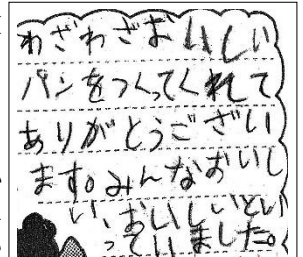 わざわざおいしい
パンをつくてくれて
ありがとうござい
ます。みんなおいし
い、おいしいとい
っていました。